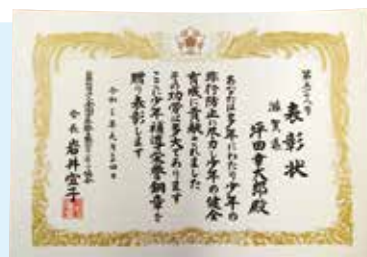 表彰状
滋賀県
坪田幸太郎殿
あなたは多年にわたり少年の
非行防止に尽力し少年の健全
育成に貢献されました
その功労は多大であります
ここに少年補導栄誉銅章を
贈り表彰します
会長 岩井宜子